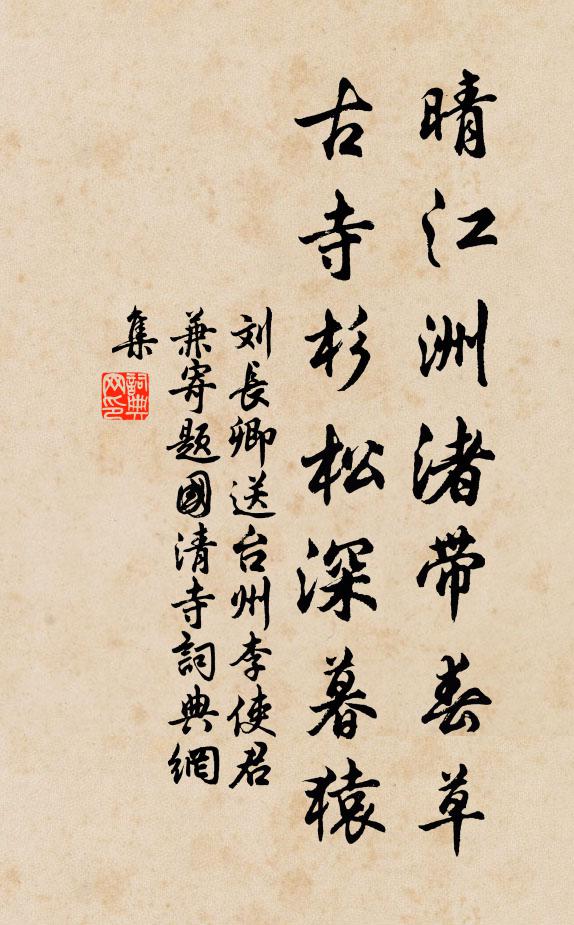 晴江洲渚带春草
古寺杉松深暮猿
刘長卿送台州李使君
兼寄题國清寺詞典網
集
詞典网印